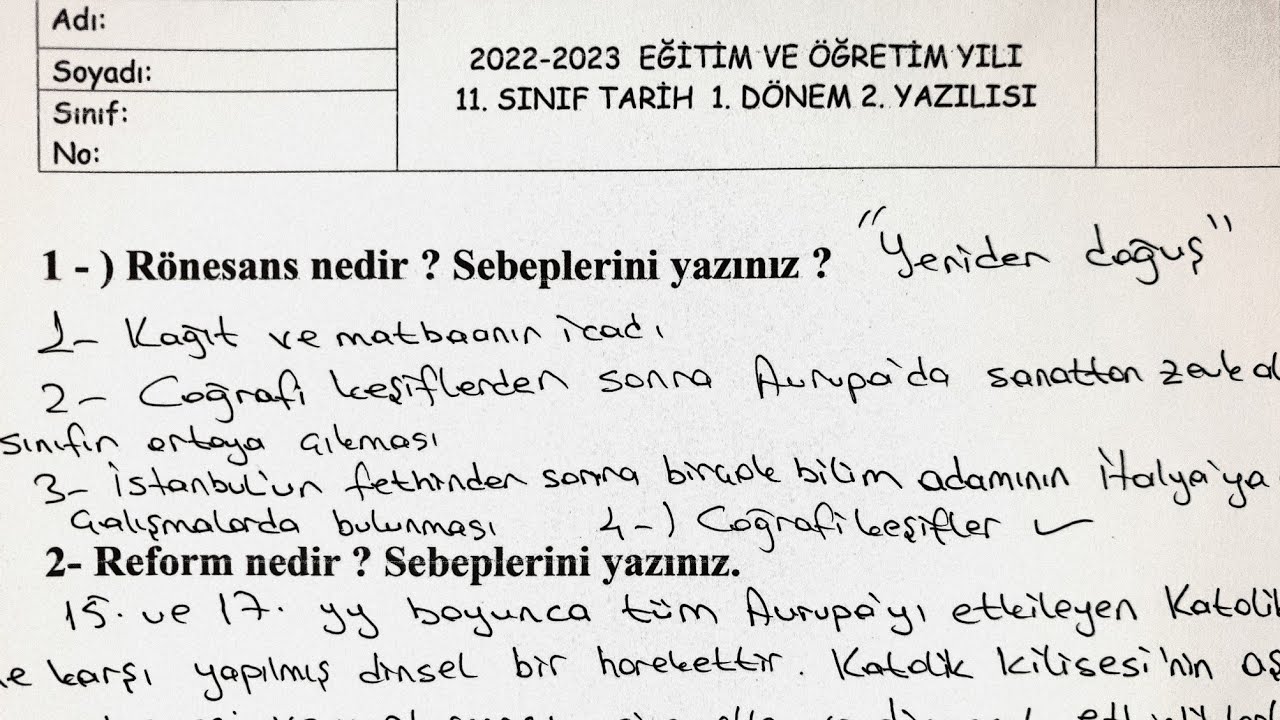 Adı:
Soyadı:
Sınıf:
No:
2022-2023 EĞİTİM VE ÖĞRETİM YILI
11. SINIF TARİH 1. DÖNEM 2. YAZILISI
1 - ) Rönesans nedir ? Sebeplerini yazınız ? "Yeniden doğuş"
1- Kağıt ve matbaanın icadı
2- Coğrafi keşiflerden sonra Avrupa'da sanattan zevk al
sınıfın ortaya çıkması
3- İstanbul'un fethinden sonra birçok bilim adamının İtalya'ya
çalışmalarda bulunması 4-) Coğrafi keşifler
2- Reform nedir ? Sebeplerini yazınız.
15. ve 17. yy boyunca tüm Avrupa'yı etkileyen Katolik
karşı yapılmış dinsel bir harekettir. Katolik Kilisesi'nin